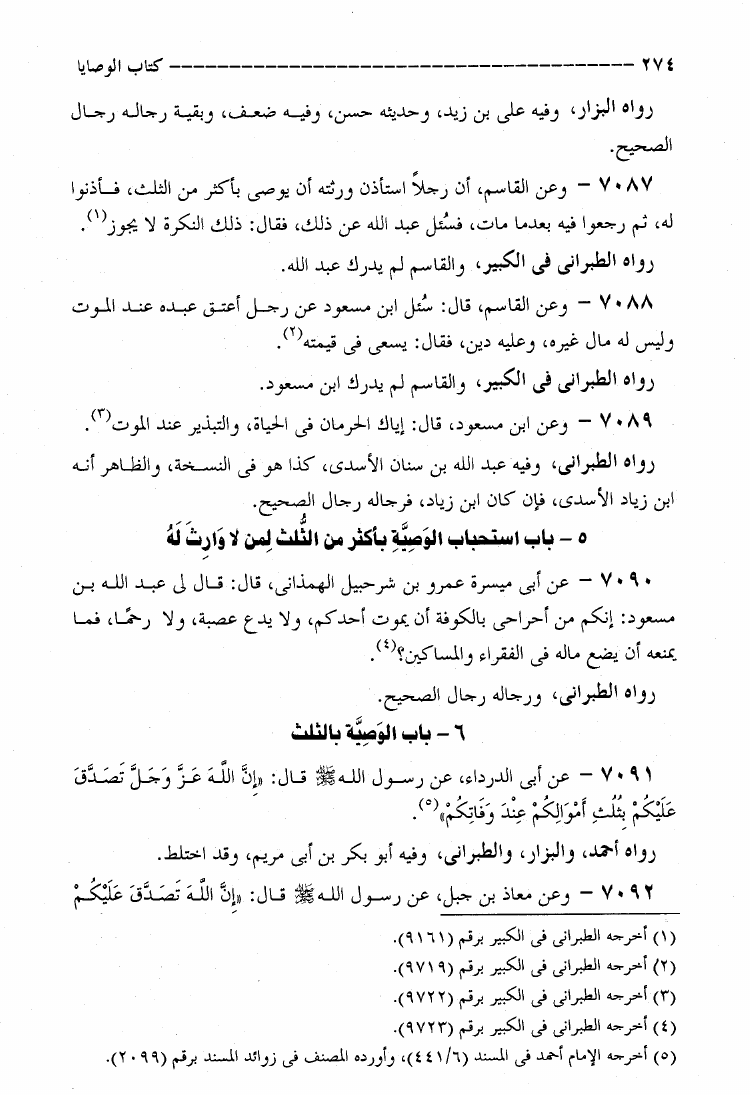 ٢٧٤ ----------------------------------------- كتاب الوصايا
رواه البزار، وفيه على بن زيد، وحديثه حسن، وفيه ضعف، وبقية رجاله رجال
الصحيح.
٧٠٨٧ – وعن القاسم، أن رجلاً استأذن ورثته أن يوصى بأكثر من الثلث، فأذنوا
له، ثم رجعوا فيه بعدما مات، فسُئل عبد الله عن ذلك، فقال: ذلك النكرة لا يجوز(١).
رواه الطبرانى فى الكبير، والقاسم لم يدرك عبد الله.
٧٠٨٨ – وعن القاسم، قال: سُئل ابن مسعود عن رجل أعتق عبده عند الموت
وليس له مال غيره، وعليه دين، فقال: يسعى فى قيمته(٢).
رواه الطبرانى فى الكبير، والقاسم لم يدرك ابن مسعود.
٧٠٨٩ – وعن ابن مسعود، قال: إياك الحرمان فى الحياة، والتبذير عند الموت(٣).
رواه الطبرانى، وفيه عبد الله بن سنان الأسدى، كذا هو فى النسخة، والظاهر أنه
ابن زياد الأسدى، فإن كان ابن زياد، فرجاله رجال الصحيح.
٥ – باب استحباب الوَصِيَّةِ بأكثر من الثُّلث لِمن لا وَارِثَ لَهُ
٧٠٩٠ – عن أبى ميسرة عمرو بن شرحبيل الهمذانى، قال: قال لى عبد الله بن
مسعود: إنكم من أحراحى بالكوفة أن يموت أحدكم، ولا يدع عصبة، ولا رحمًا، فما
يمنعه أن يضع ماله فى الفقراء والمساكين؟(٤).
رواه الطبرانى، ورجاله رجال الصحيح.
٦ – باب الوَصِيَّة بالثلث
٧٠٩١ – عن أبى الدرداء، عن رسول الله ﷺ قال: «إِنَّ اللَّهَ عَزَّ وَجَلَّ تَصَدَّقَ
عَلَيْكُمْ بِثُلُثِ أَمْوَالِكُمْ عِنْدَ وَفَاتِكُمْ»(٥).
رواه أحمد، والبزار، والطبرانى، وفيه أبو بكر بن أبى مريم، وقد اختلط.
٧٠٩٢ – وعن معاذ بن جبل، عن رسول الله ﷺ قال: «إِنَّ اللَّهَ تَصَدَّقَ عَلَيْكُمْ
(١) أخرجه الطبرانى فى الكبير برقم (٩١٦١).
(٢) أخرجه الطبرانى فى الكبير برقم (٩٧١٩).
(٣) أخرجه الطبرانى فى الكبير برقم (٩٧٢٢).
(٤) أخرجه الطبرانى فى الكبير برقم (٩٧٢٣).
(٥) أخرجه الإمام أحمد فى المسند (٤٤١/٦)، وأورده المصنف فى زوائد المسند برقم (٢٠٩٩).